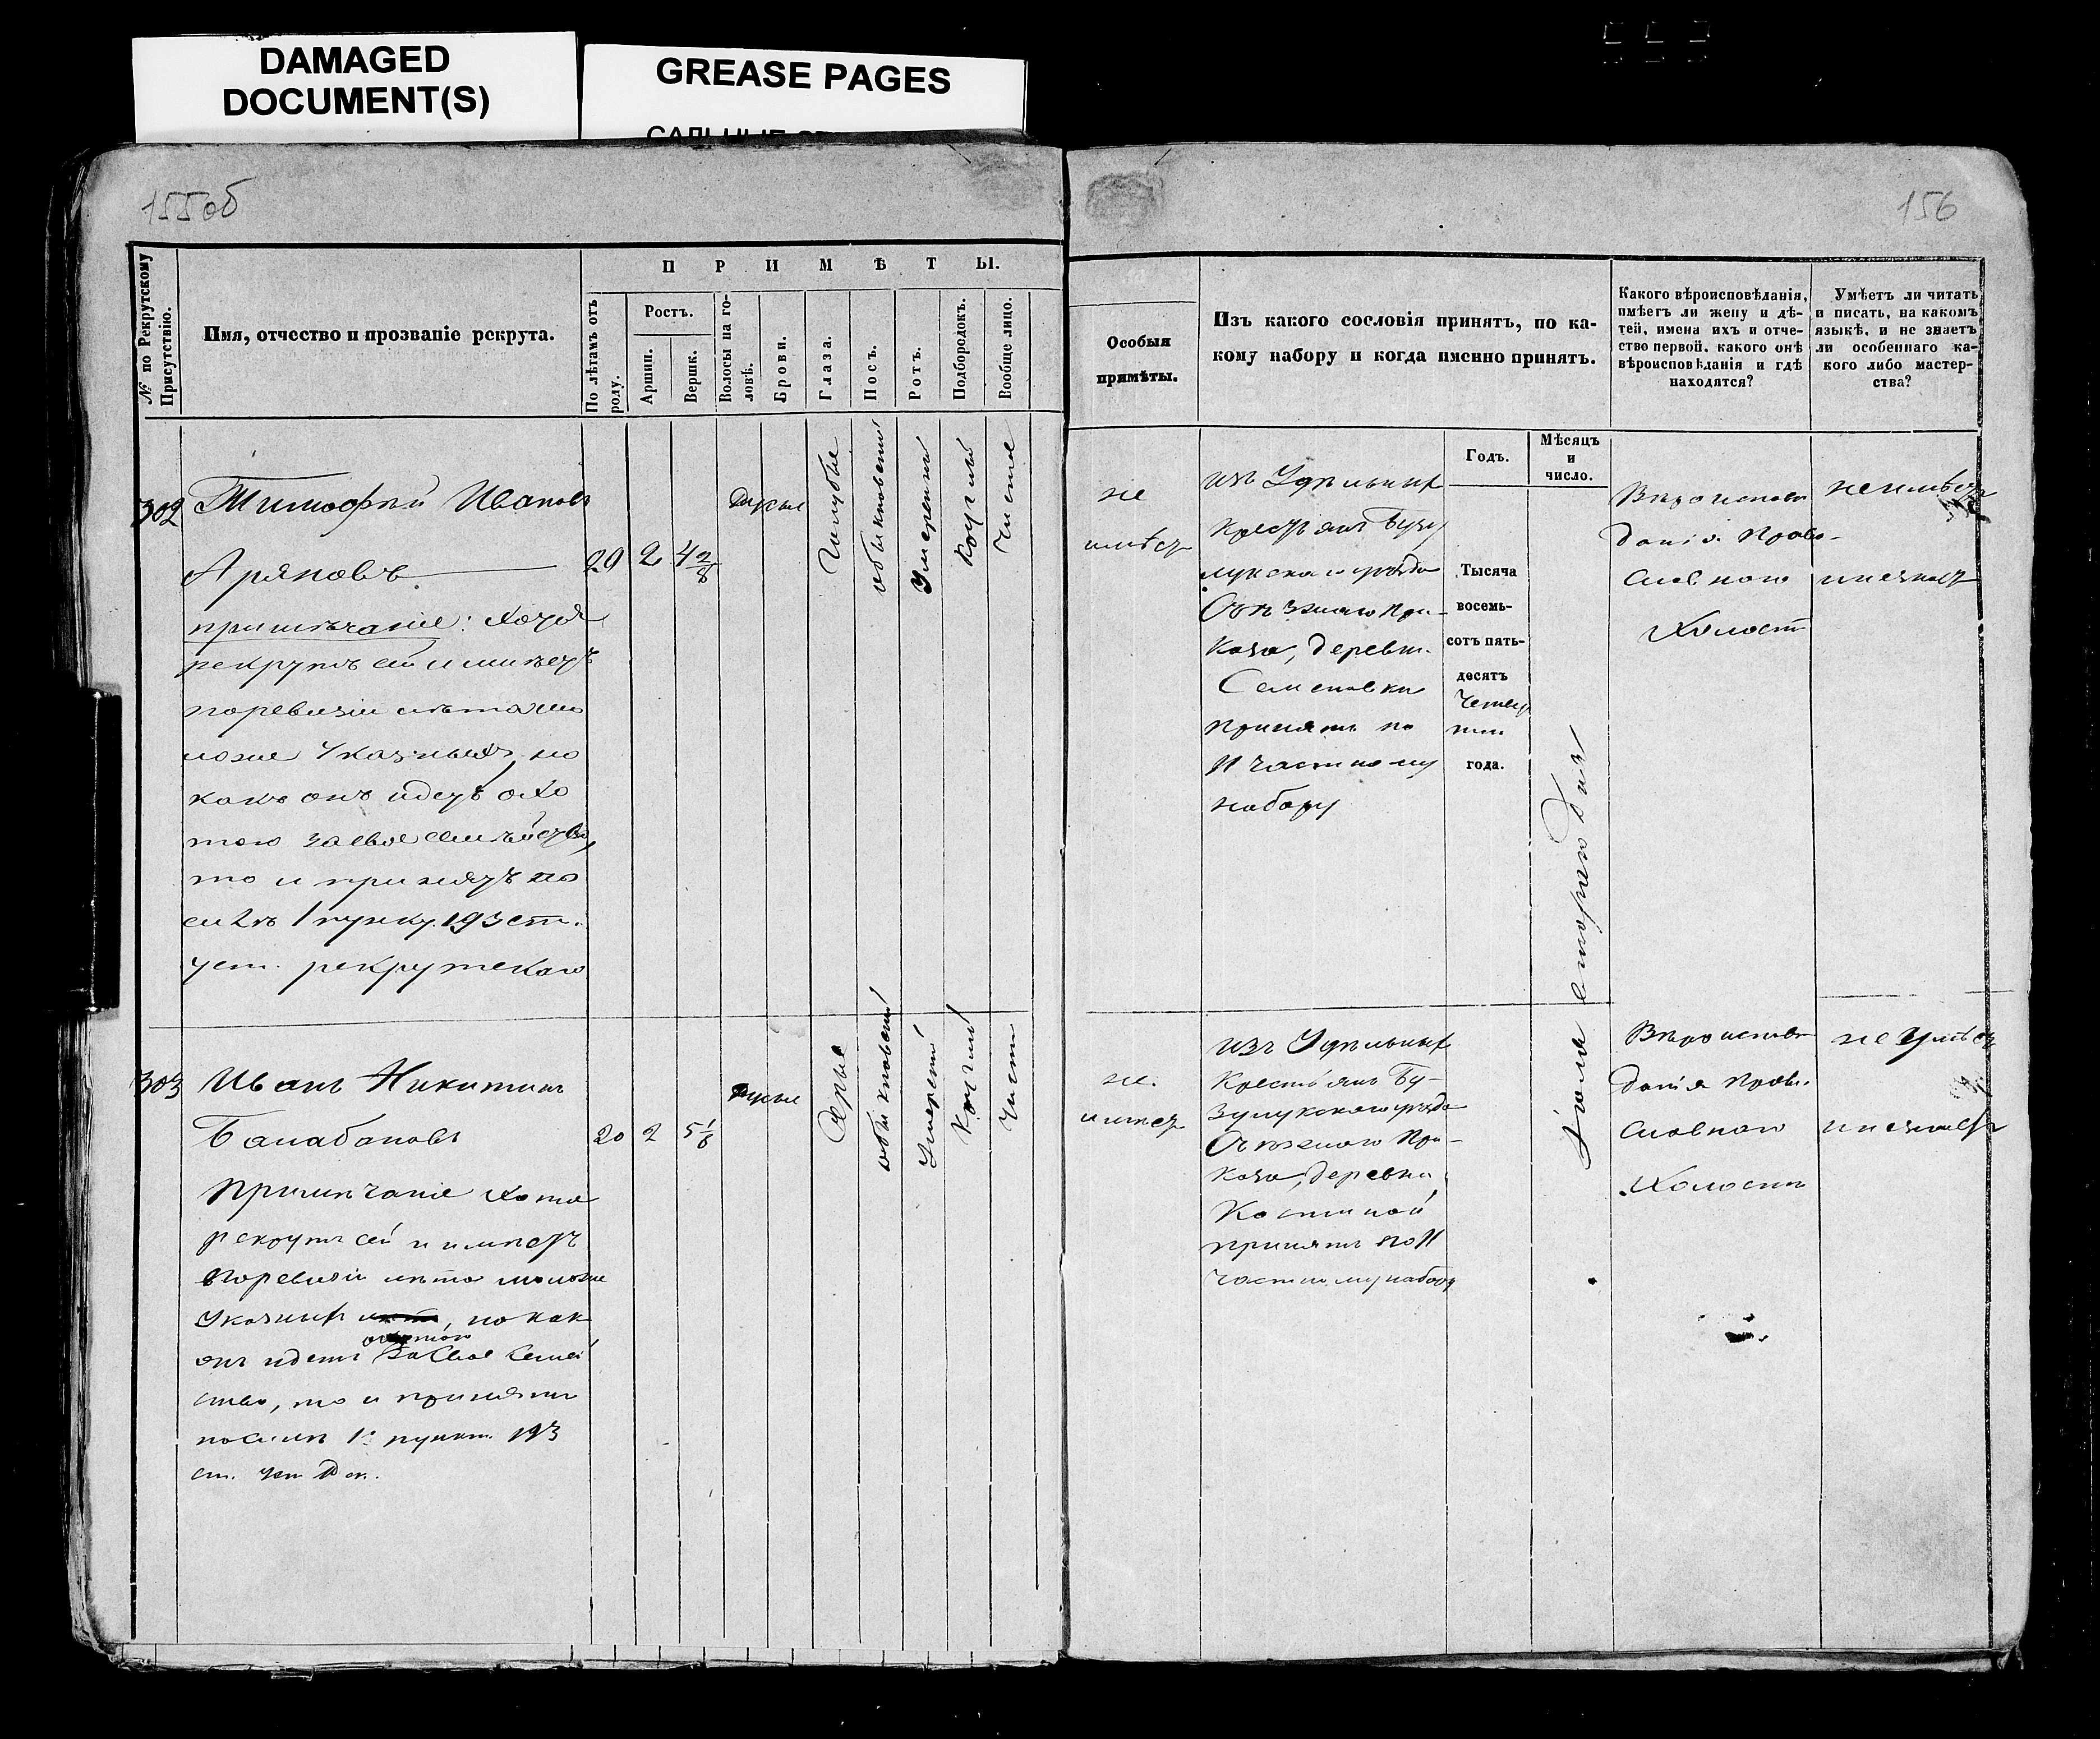 DAMAGED
DOCUMENT(S)
GREASE PAGES
155об
156
№ по Рекрутскому
Присутствію.
Имя, отчество и прозваніе рекрута.
П Р И М Ѣ Т Ы.
По лѣтамъ отъ
роду.
Ростъ.
Аршин.
Вершк.
Волосы на го-
ловѣ.
Брови.
Глаза.
Носъ.
Ротъ.
Подбородокъ.
Вообще лицо.
Особыя
примѣты.
Изъ какого сословія принятъ, по ка-
кому набору и когда именно принятъ.
Годъ.
Мѣсяцъ
и
число.
Какого вѣроисповѣданія,
имѣетъ ли жену и дѣ-
тей, имена ихъ и отче-
ство первой, какого онѣ
вѣроисповѣданія и гдѣ
находятся?
Умѣетъ ли читать
и писать, на какомъ
языкѣ, и не знаетъ
ли особеннаго ка-
кого либо мастер-
ства?
302
Тимофѣй Ивановъ
Аряповъ
примѣчаніе: Хотя
рекрутъ сей и имѣетъ
поревизіи лѣта мо
ложе Указныхъ, но
какъ онъ идетъ охо
тою за свое семѣйство,
то и принятъ по
силѣ 1 пунку. 193 ст.
уст. рекрутскаго
29
2
4 2/8
русые
Голубые
обыкновенный
Умеренный
Круглый
Чистое
не
имѣетъ
изъ Удѣльныхъ
Крестьянъ Бузу
лукскаго уѣзда
Съѣзжаго При-
каза, деревни
Семеновки
принятъ по
11 частному
набору
Тысяча
восемь-
сотъ пять-
десятъ
четвер
таго
года.
Іюля втораго дня
Вѣроисповѣ
данія Право-
славнаго
Холостъ
неумѣетъ
и незнаетъ
303
Иванъ Никитинъ
Балабановъ
Примѣчаніе Хотя
рекрутъ сей и имѣетъ
поревизіи лѣта моложе
Указныхъ лѣтъ, но какъ
онъ идетъ охотою за свое семей
ство, то и принятъ
по силѣ 1. пункт. 193
ст. уст. Рек.
20
2
5 1/8
русые
Серые
обыкновенный
Умеренный
Круглый
Чистое
не.
имѣетъ
изъ Удѣльныхъ
Крестьянъ Бу-
зулукскаго уѣзда
Съѣзжаго При-
каза, деревни
Костиной
принятъ по 11
частному набору
Вѣроисповѣ
данія Право.
славнаго
Холостъ
не умѣетъ
и незнаетъ